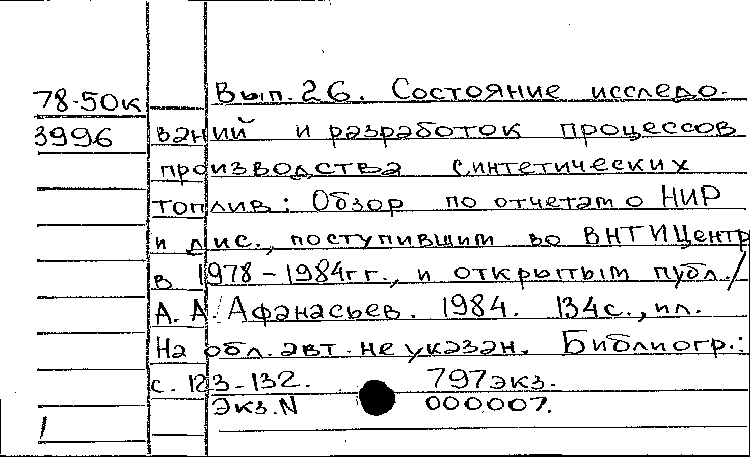 78-50к Вып. 26. Состояние исследо-
3996 ваний и разработок процессов
производства синтетических
топлив: Обзор по отчетам о НИР
и дис., поступившим во ВНТИЦентр
в 1978-1984гг., и открытым публ./
А. А. Афанасьев. 1984. 134с., ил.
На обл. авт. не указан. Библиогр.:
с. 123-132. 797экз.
Экз. N 000007.